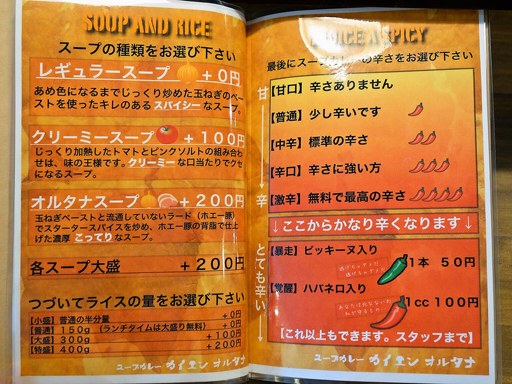 SOUP AND RICE
スープの種類をお選び下さい
レギュラースープ +0円
あめ色になるまでじっくり炒めた玉ねぎのペー
ストを使ったキレのあるスパイシーなスープ。
クリーミースープ +100円
じっくり加熱したトマトとピンクソルトの組み合わ
せは、味の王様です。クリーミーな口当たりでクセ
になるスープ。
オルタナスープ +200円
玉ねぎペーストと流通していないラード（ホエー豚）
でスタータースパイスを炒め、ホエー豚の背脂で仕上
げた濃厚こってりなスープ。
各スープ大盛 +200円
つづいてライスの量をお選び下さい
【小盛】普通の半分量 +0円
【普通】150g （ランチタイムは大盛り無料） +0円
【大盛】300g +100円
【特盛】400g +200円
スープカレー カイエン オルタナ
SPICY
最後にスープカレーの辛さをお選び下さい
甘 ← → 辛 とても辛い
【甘口】辛さありません
【普通】少し辛いです
【中辛】標準の辛さ
【辛口】辛さに強い方
【激辛】無料で最高の辛さ
↓ここからかなり辛くなります↓
【暴走】ピッキーヌ入り
1本 50円
【覚醒】ハバネロ入り
1cc 100円
【これ以上もできます。スタッフまで】
スープカレー カイエン オルタナ